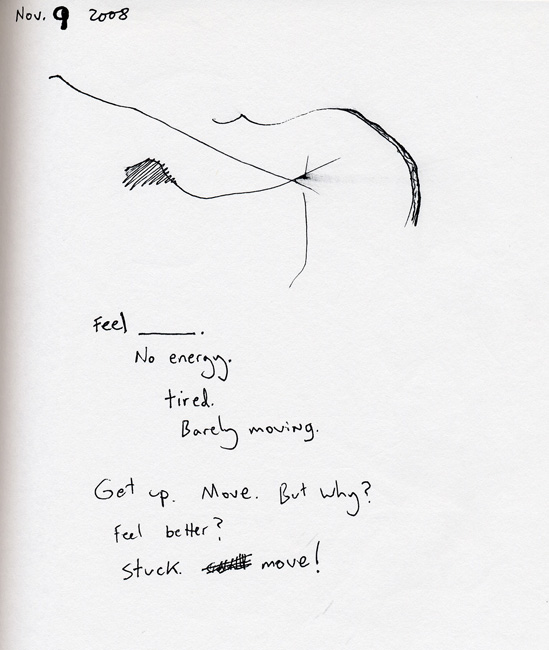 Nov. 9 2008
Feel _____.
No energy.
tired.
Barely moving.
Get up. Move. But why?
Feel better?
Stuck. move!